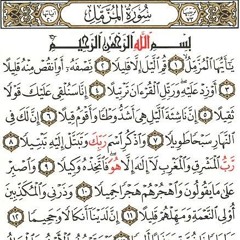 سُورَةُ المُزَّمِّل
بِسْمِ اللَّهِ الرَّحْمَٰنِ الرَّحِيمِ
يَٰٓأَيُّهَا الْمُزَّمِّلُ ۝١ قُمِ الَّيْلَ إِلَّا قَلِيلًا ۝٢ نِّصْفَهُۥٓ أَوِ انقُصْ مِنْهُ قَلِيلًا
۝٣ أَوْ زِدْ عَلَيْهِ وَرَتِّلِ الْقُرْءَانَ تَرْتِيلًا ۝٤ إِنَّا سَنُلْقِى عَلَيْكَ قَوْلًا
ثَقِيلًا ۝٥ إِنَّ نَاشِئَةَ الَّيْلِ هِىَ أَشَدُّ وَطْـًٔا وَأَقْوَمُ قِيلًا ۝٦ إِنَّ لَكَ فِى
النَّهَارِ سَبْحًا طَوِيلًا ۝٧ وَاذْكُرِ اسْمَ رَبِّكَ وَتَبَتَّلْ إِلَيْهِ تَبْتِيلًا ۝٨
رَّبُّ الْمَشْرِقِ وَالْمَغْرِبِ لَآ إِلَٰهَ إِلَّا هُوَ فَاتَّخِذْهُ وَكِيلًا ۝٩ وَاصْبِرْ
عَلَىٰ مَا يَقُولُونَ وَاهْجُرْهُمْ هَجْرًا جَمِيلًا ۝١٠ وَذَرْنِى وَالْمُكَذِّبِينَ
أُو۟لِى النَّعْمَةِ وَمَهِّلْهُمْ قَلِيلًا ۝١١ إِنَّ لَدَيْنَآ أَنكَالًا وَجَحِيمًا ۝١٢